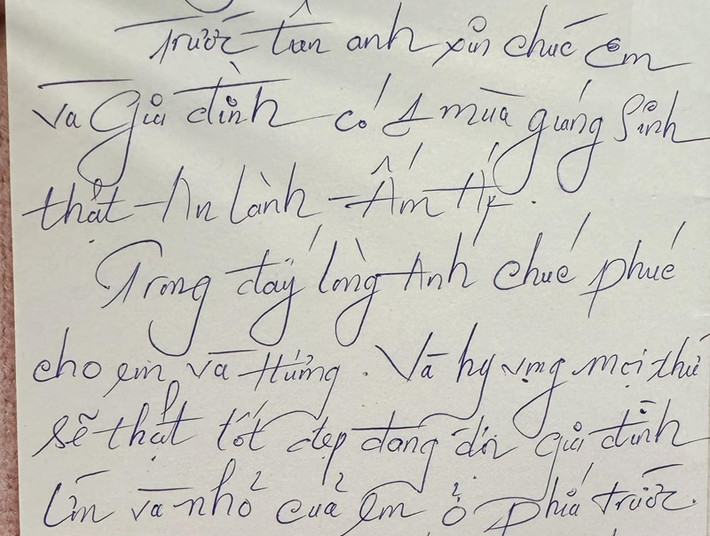 Trước tiên anh xin chúc em
và Gia đình có 1 mùa giáng Sinh
thật - An Lành - Ấm Áp.
Trong đáy lòng Anh chúc phúc
cho em và Hưng. Và hy vọng mọi thứ
sẽ thật tốt đẹp đang đón gia đình
lớn và nhỏ của em ở phía trước.